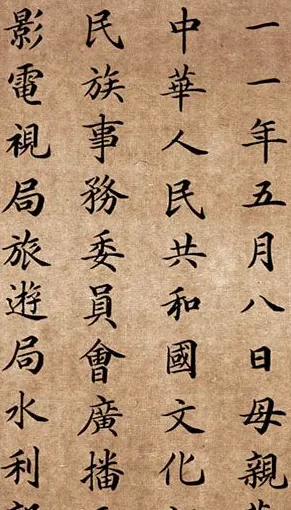 一一年五月八日母親
中華人民共和國文化
民族事務委員會廣播
影電視局旅遊局水利